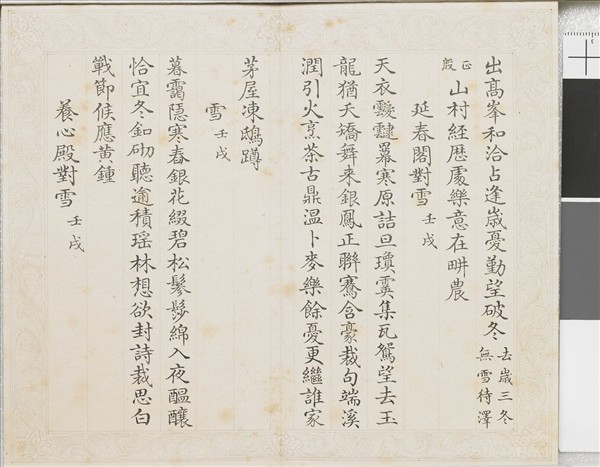 出高峯和洽占逢歲憂勤望破冬去歲三冬無雪待澤
正殷山村經歴處樂意在畊農
延春閣對雪 壬戌
天衣靉靆羃寒原詰旦瓊霙集瓦鴛望去玉
龍猶夭矯舞来銀鳳正聯騫含豪裁句端溪
潤引火烹茶古鼎溫卜麥樂餘憂更繼誰家
茅屋凍鴟蹲
雪 壬戌
暮靄隱寒舂銀花綴碧松鬖髿綿入夜醖釀
恰宜冬釦砌聽逾積瑶林想欲封詩裁思白
戰節候應黄鍾
養心殿對雪 壬戌